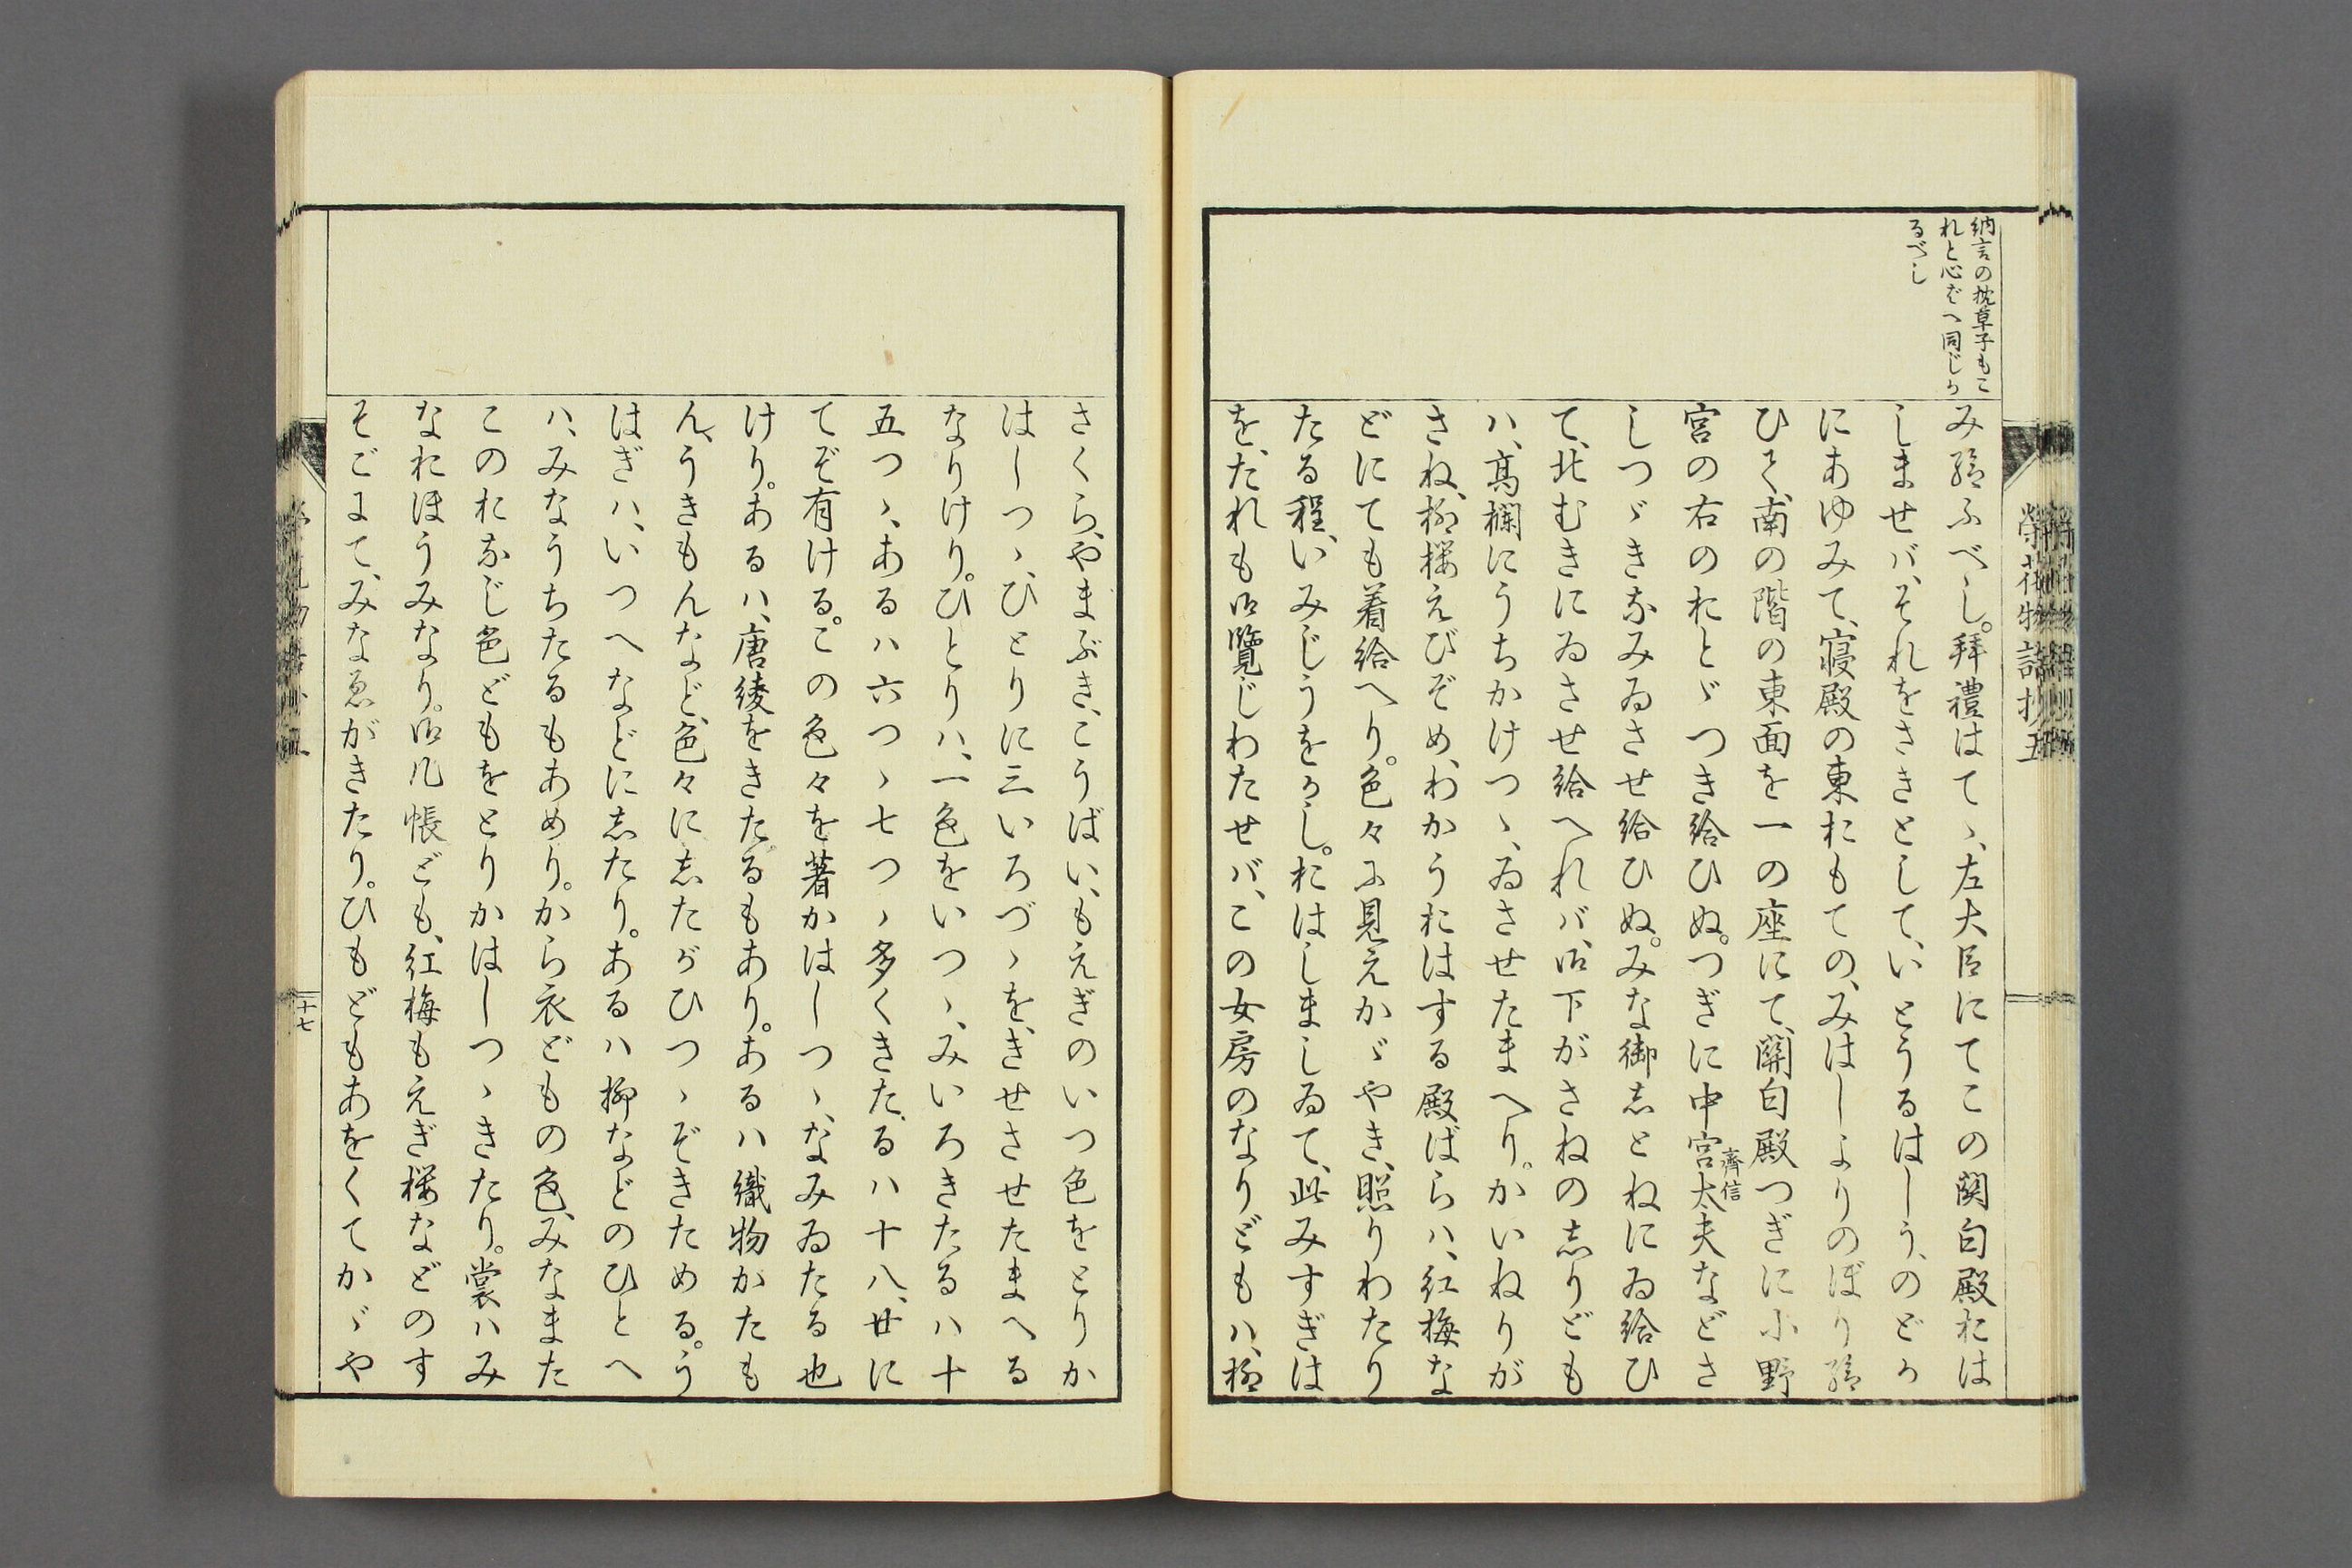 納言の枕草子もこ
れと心ばへ同じか
るべし
み給ふべし。拜禮はてゝ、左大臣にてこの関白殿おは
しませバ、それをさきとして、いとうるはしう、のどか
にあゆみて、寝殿の東おもての、みはしよりのぼり給
ひて、南の階の東面を一の座にて、関白殿つぎに小野
宮の右のおとゞつき給ひぬ。つぎに中宮太夫などさ
齊信
しつゞきなみゐさせ給ひぬ。みな御志とねにゐ給ひ
て、北むきにゐさせ給へれバ、御下がさねの志りども
ハ、髙欄にうちかけつゝ、ゐさせたまへり。かいねりが
さね、柳櫻えびぞめ、わかうおはする殿ばらハ、紅梅な
どにても着給へり。色々に見えかゞやき、照りわたり
たる程、いみじうをかし。おはしましゐて、此みすぎは
を、たれも御覽じわたせバ、この女房のなりどもハ、柳
さくら、やまぶき、こうばい、もえぎのいつ色をとりか
はしつゝ、ひとりに三いろづゝを、きせさせたまへる
なりけり。ひとりハ、一色をいつゝ、みいろきたるハ十
五つゝ、あるハ六つゝ七つゝ多くきたるハ十八、廿に
てぞ有ける。この色々を著かはしつゝ、なみゐたる也
けり。あるハ、唐綾をきたるもあり。あるハ織物がたも
ん、うきもんなど、色々に志たがひつゝぞきためる。う
はぎハ、いつへなどに志たり。あるハ柳などのひとへ
ハ、みなうちたるもあめり。から衣どもの色、みなまた
このおなじ色どもをとりかはしつゝきたり。裳ハみ
なおほうみなり。御几帳ども、紅梅もえぎ櫻などのす
そごにて、みなゑがきたり。ひもどもあをくてかゞや
榮花物語抄五
十七